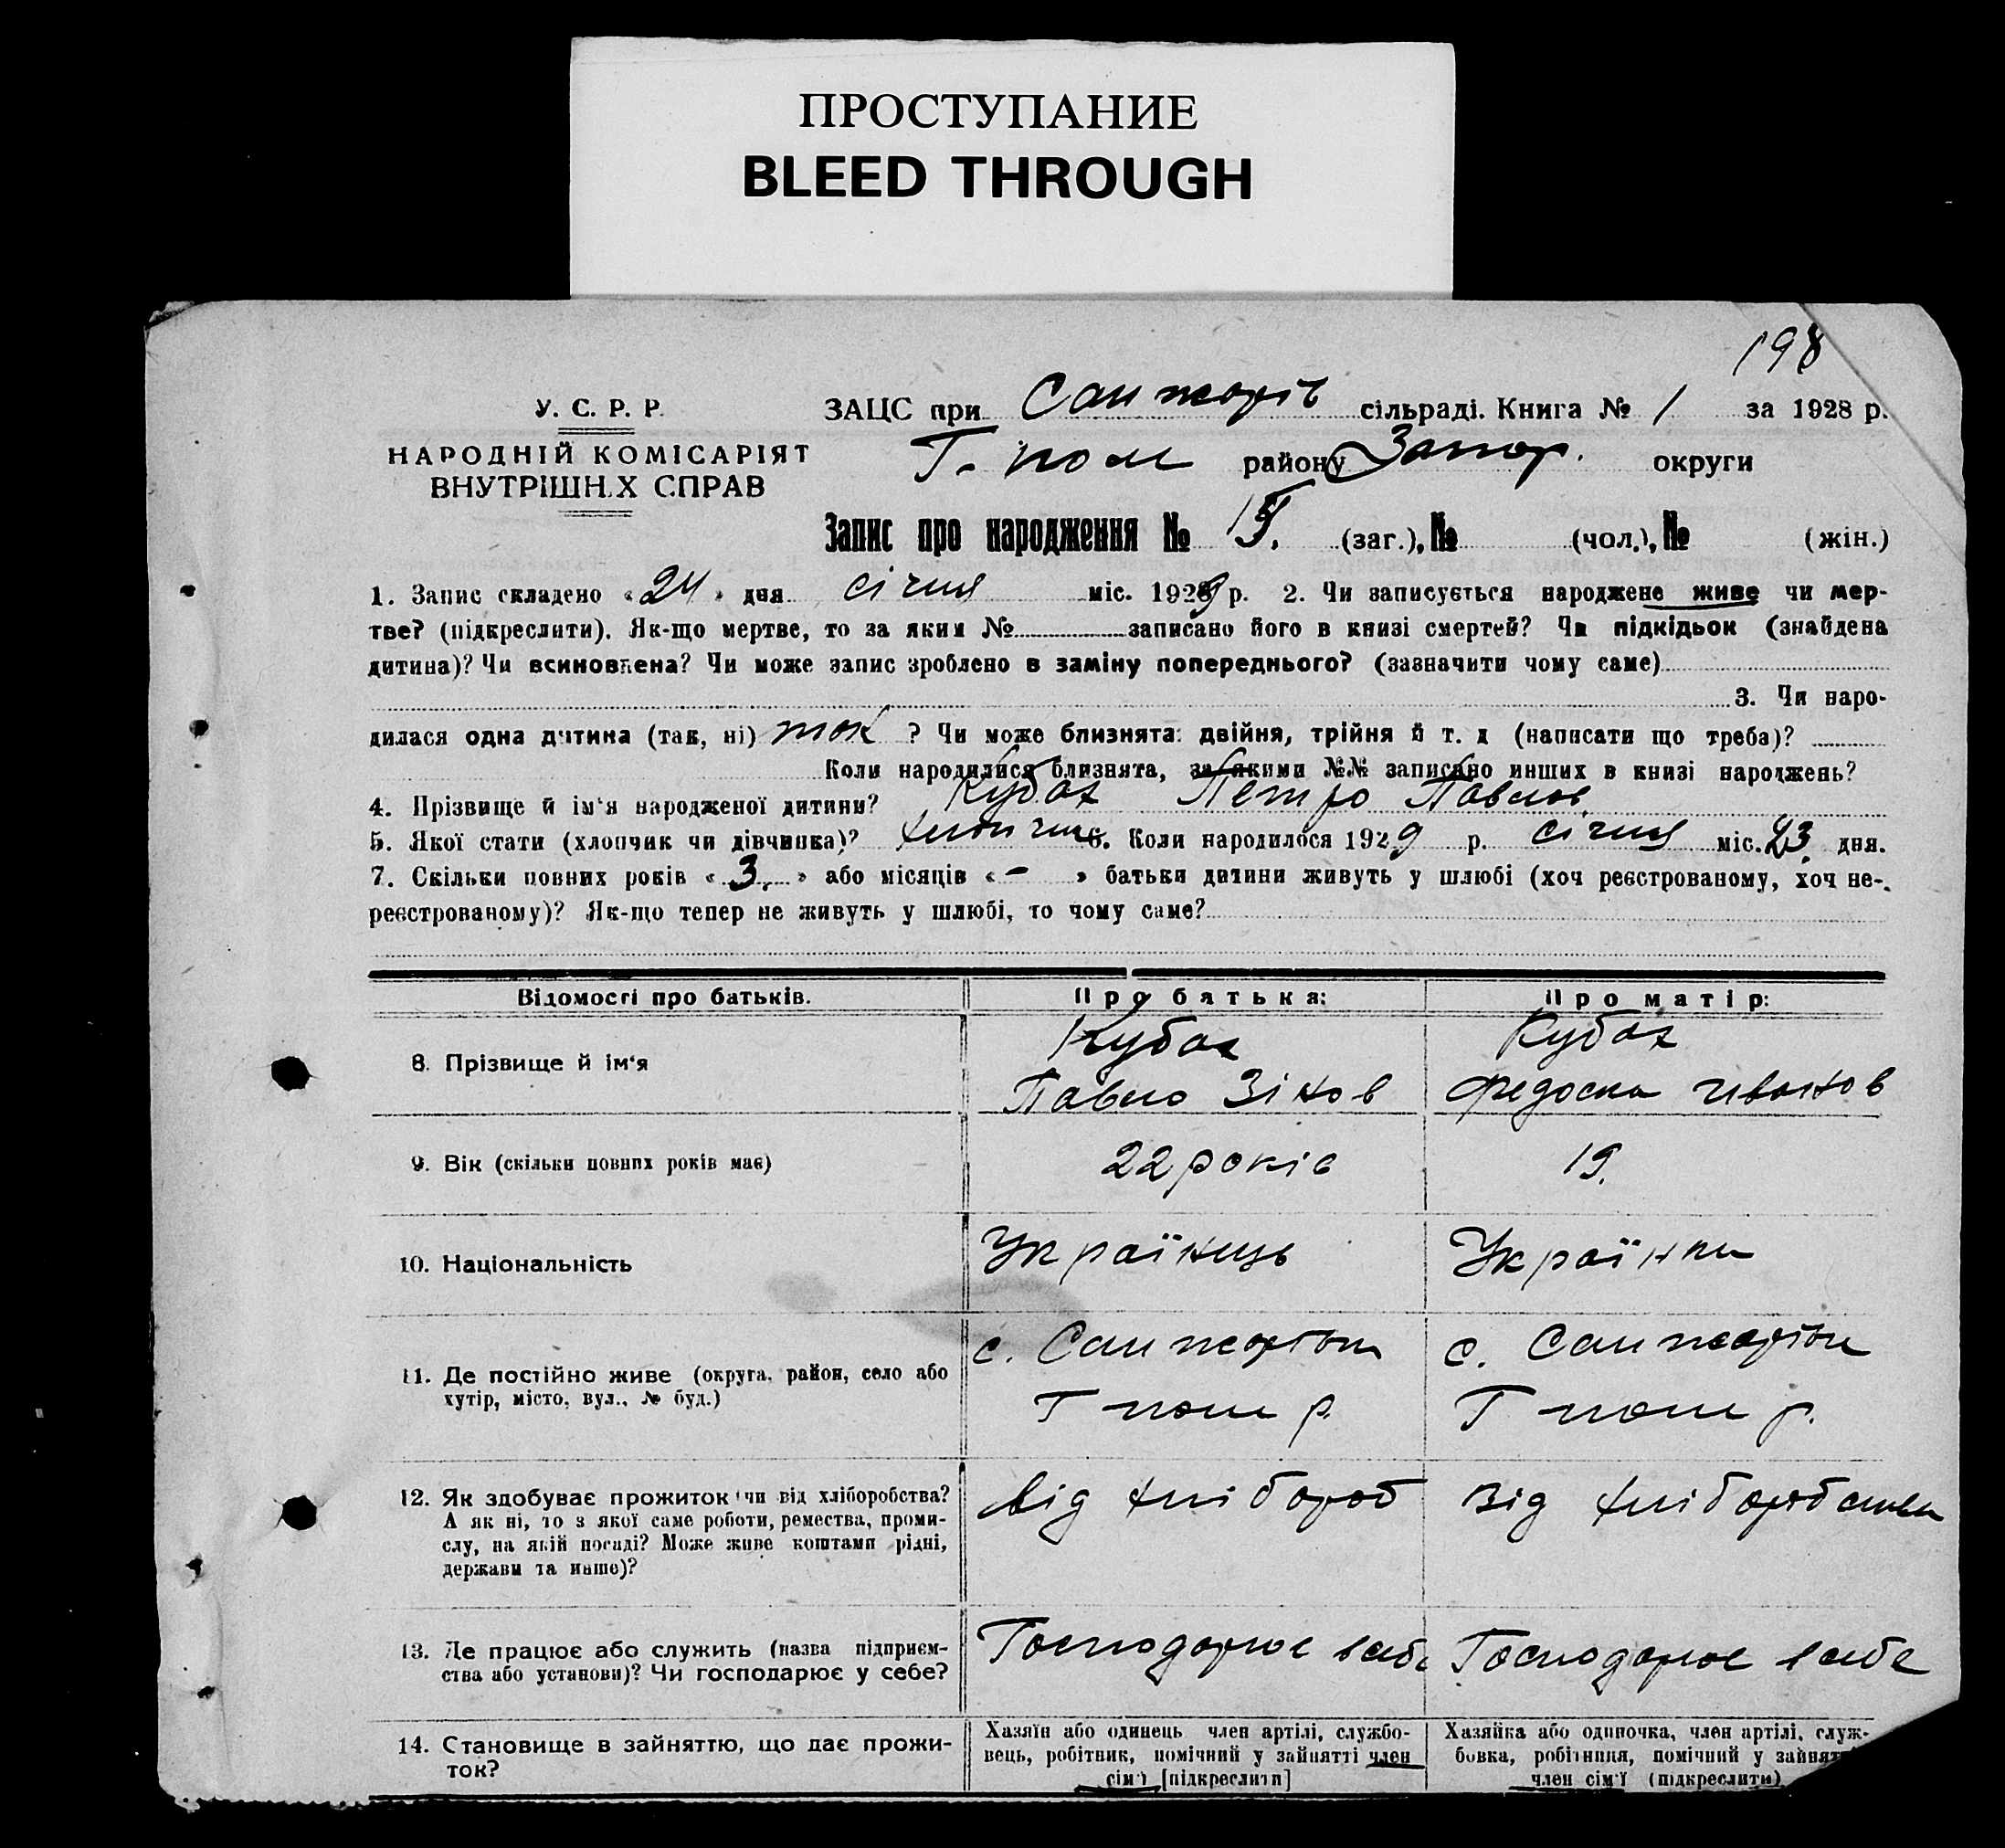 ПРОСТУПАНИЕ
BLEED THROUGH
198
У. С. Р. Р.
НАРОДНІЙ КОМІСАРІЯТ
ВНУТРІШНІХ СПРАВ
ЗАЦС при Санжарів сільраді. Книга № 1 за 1928 р.
Г. пол району Запор. округи
Запис про народження № 15. (заг.), № (чол.), № (жін.)
1. Запис складено «24» дня січня міс. 1929 р. 2. Чи записується народжене живе чи мер-
тве? (підкреслити). Як-що мертве, то за яким № записано його в книзі смертей? Чи підкідьок (знайдена
дитина)? Чи всиновлена? Чи може запис зроблено в заміну попереднього? (зазначити чому саме)
3. Чи наро-
дилася одна дитина (так, ні) так ? Чи може близнята: двійня, трійня й т. д (написати що треба)?
Коли народилися близнята, за якими №№ записано инших в книзі народжень?
4. Прізвище й ім'я народженої дитини? Кубах Петро Павлов
5. Якої стати (хлопчик чи дівчинка)? хлопчик 6. Коли народилося 1929 р. січня міс. 23. дня.
7. Скільки повних років «3.» або місяців «-» батьки дитини живуть у шлюбі (хоч реєстрованому, хоч не-
реєстрованому)? Як-що тепер не живуть у шлюбі, то чому саме?
Відомості про батьків. Про батька: Про матір:
8. Прізвище й ім'я Кубах Кубах
Павло Зінов Федоска Иванов
9. Вік (скільки повних років має) 22 років 19.
10. Національність Українець Українка
11. Де постійно живе (округа, район, село або
хутір, місто, вул., № буд.)
с. Санжарівка с. Санжарівка
Г пол р. Г пол р.
12. Як здобуває прожиток (чи від хліборобства?
А як ні, то з якої саме роботи, ремества, проми-
слу, на якій посаді? Може живе коштами рідні,
держави та инше)?
від хлібороб від хліборобства
13. Де працює або служить (назва підприєм-
ства або установи)? Чи господарює у себе?
Господарює в себе Господарює в себе
14. Становище в зайняттю, що дає прожи-
ток?
Хазяїн або одинець член артілі, службо-
вець, робітник, помічний у зайнятті член
сім'ї [підкреслити]
Хазяйка або одиночка, член артілі, служ-
бовка, робітниця, помічний у зайнятт
член сім'ї (підкреслити)